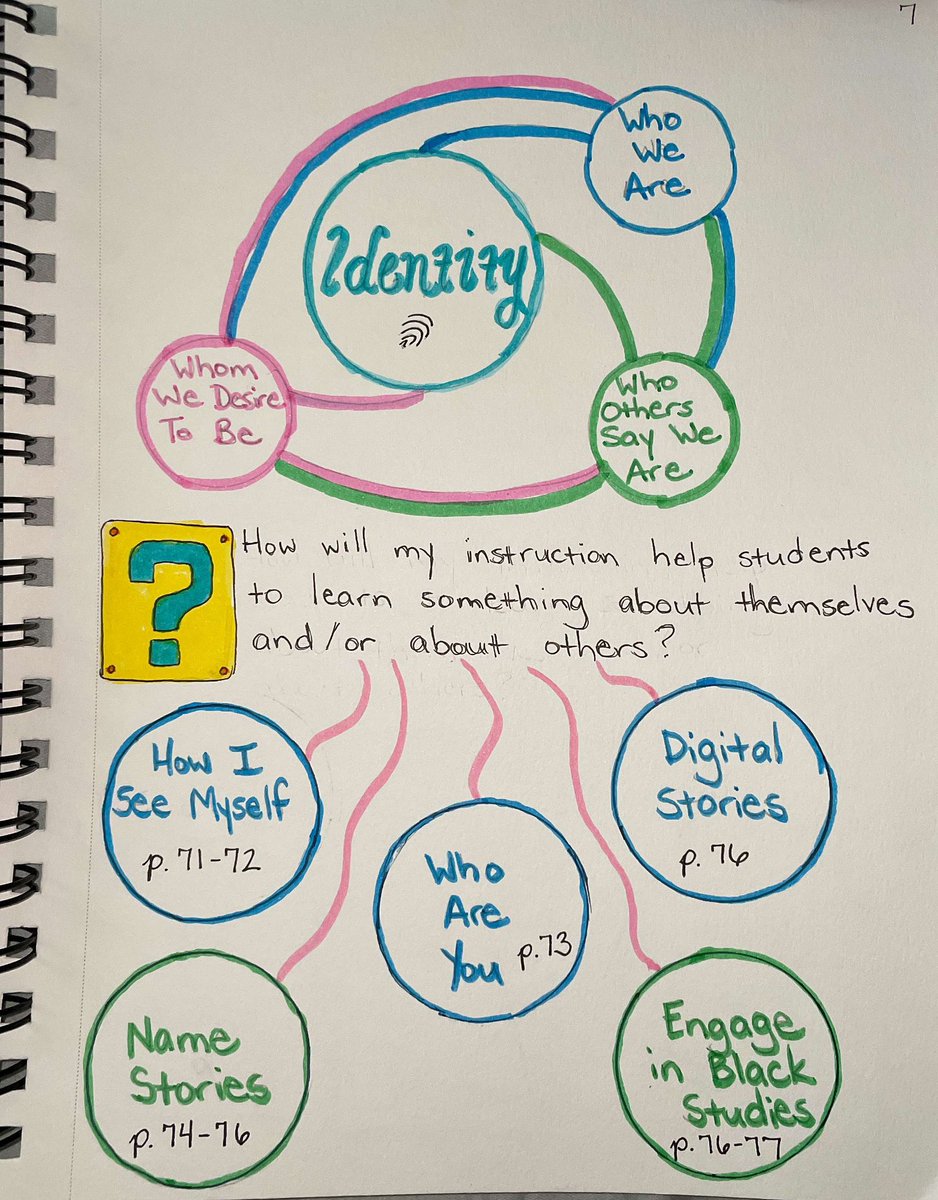 7
Who
We
Are
Identity
Whom
We Desire
To Be
Who
Others
Say We
Are
?
How will my instruction help students
to learn something about themselves
and/or about others?
How I
See Myself
p. 71-72
Digital
Stories
p. 76
Who
Are
You p.73
Name
Stories
p. 74-76
Engage
in Black
Studies
p. 76-77